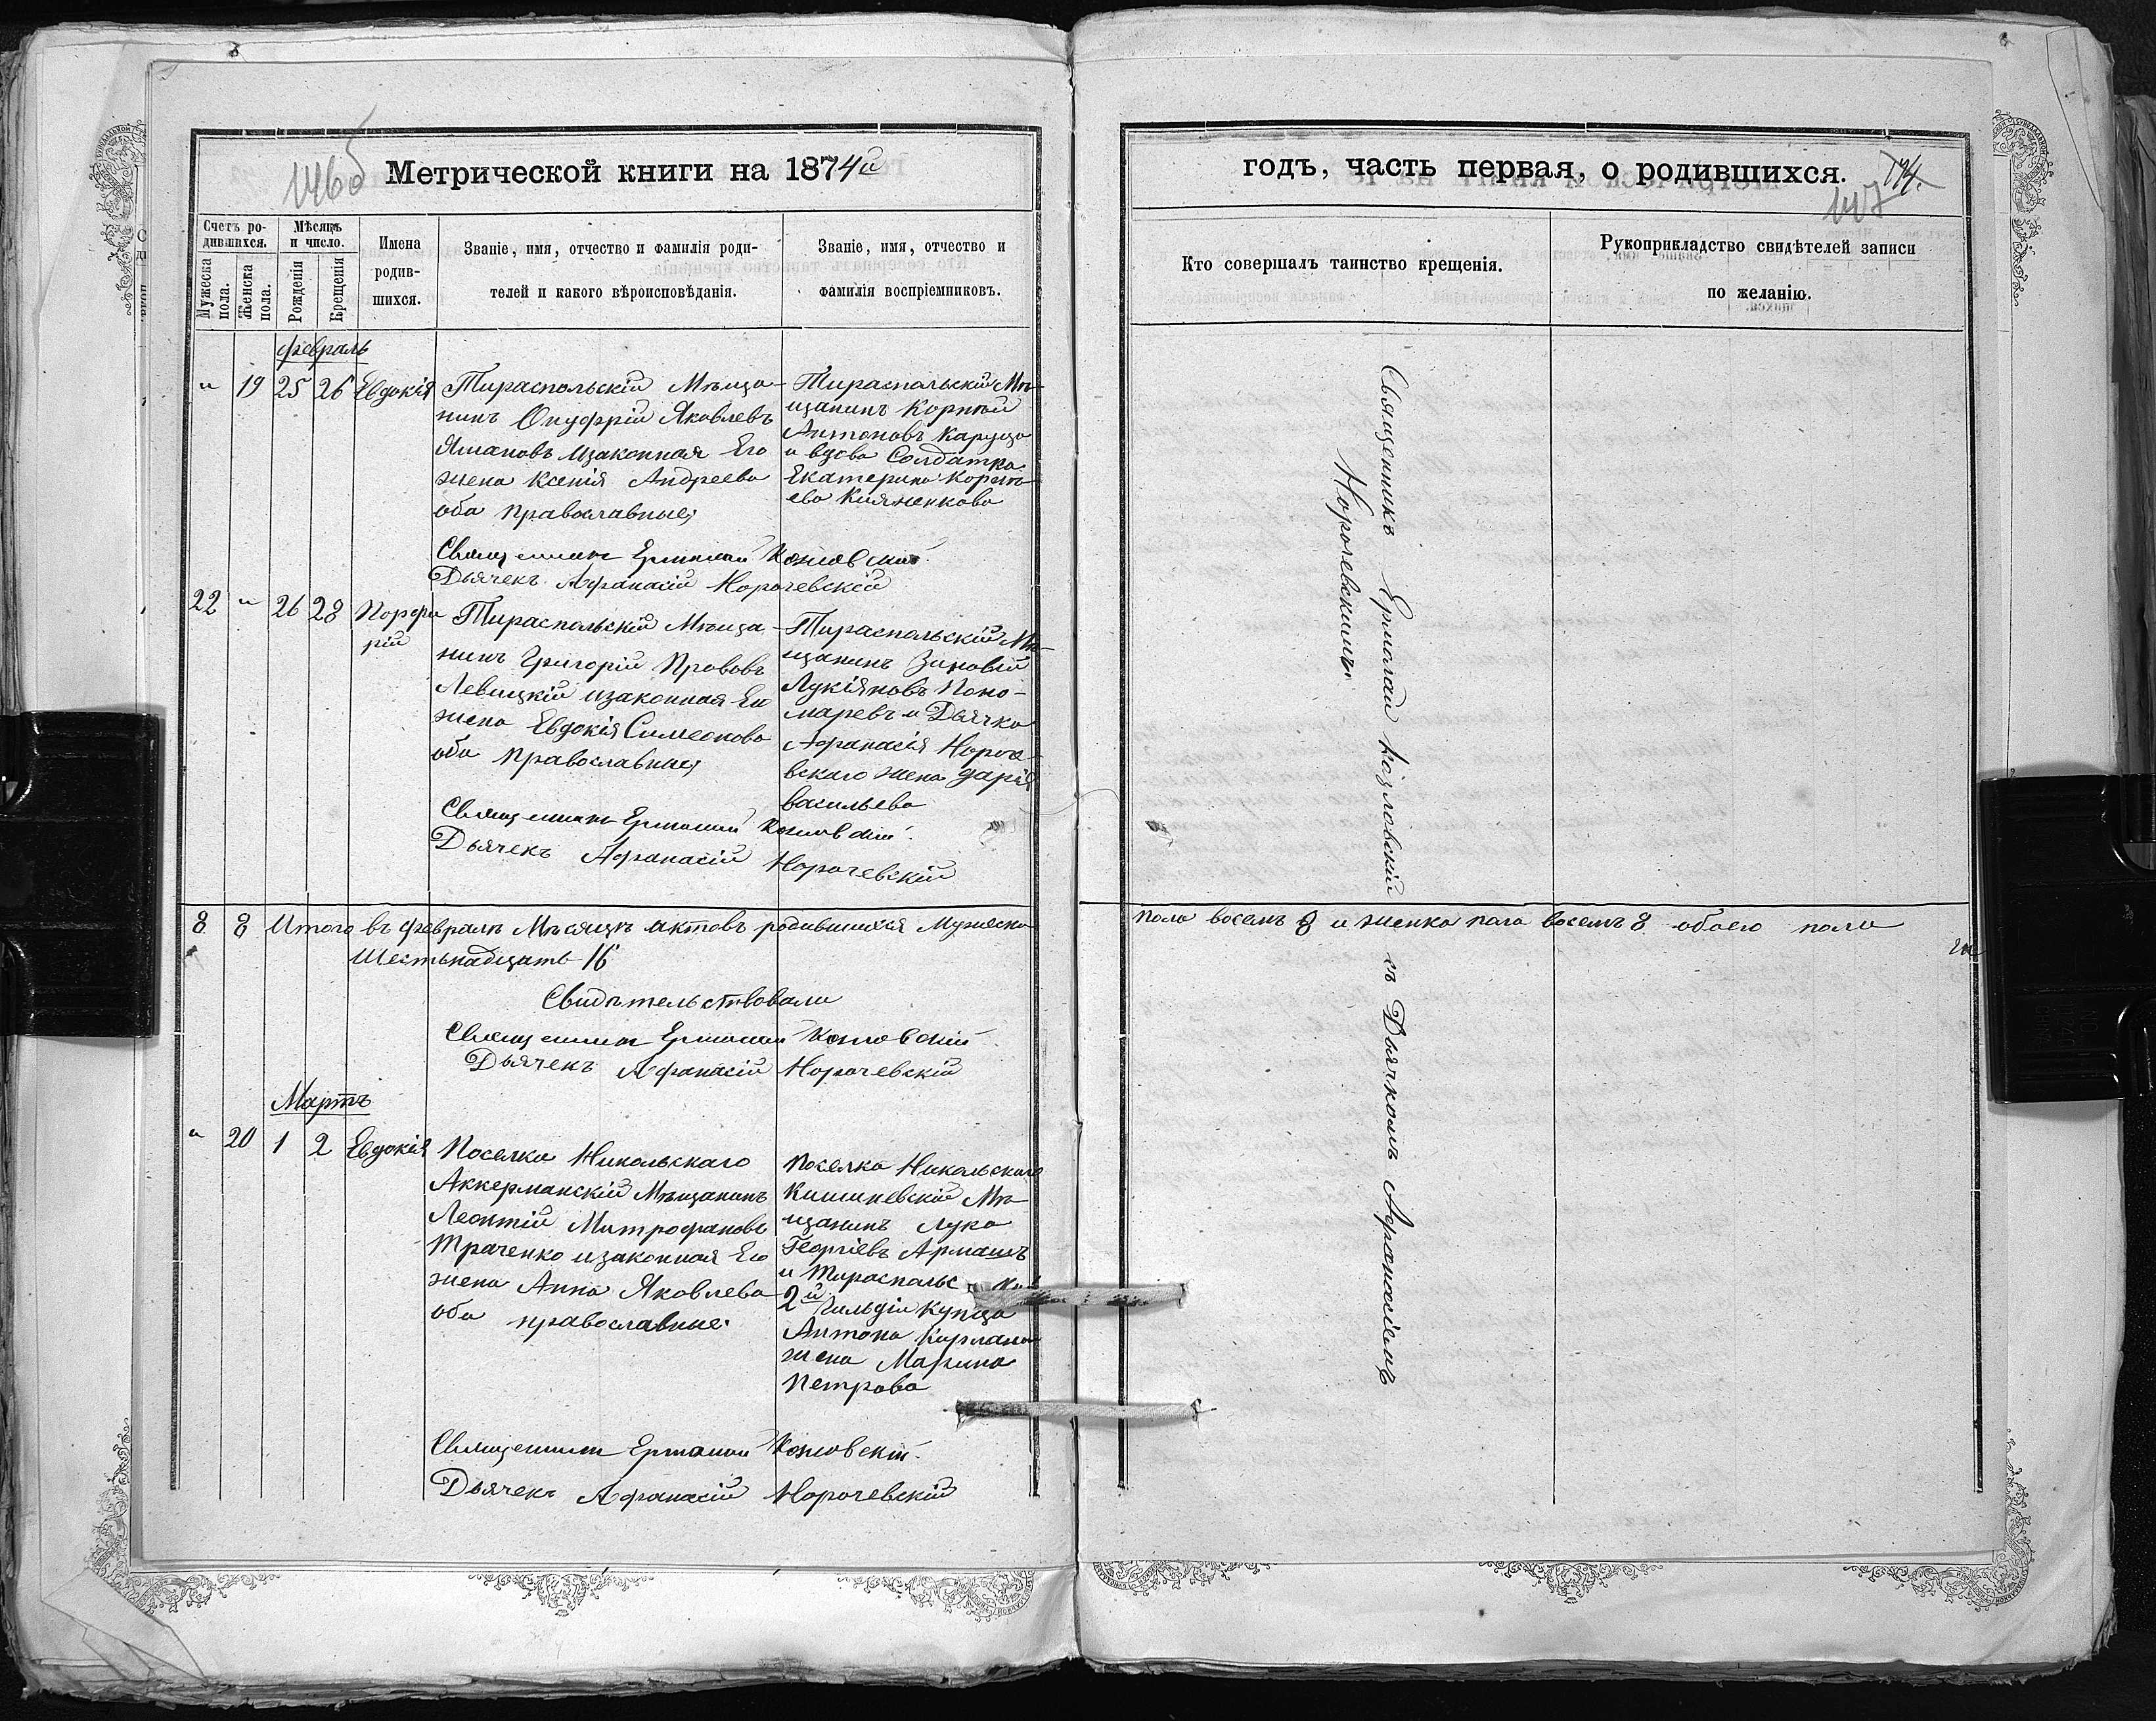 146б
Метрической книги на 1874й
Счетъ ро-
дившихся.
Мужеска
пола.
Женска
пола.
Мѣсяцъ
и число.
Рожденія
Крещенія
Имена
родив-
шихся.
Званіе, имя, отчество и фамилія роди-
телей и какого вѣроисповѣданія.
Званіе, имя, отчество и
фамилія воспріемниковъ.
февраль
" 19 25 26 Евдокія
Тираспольскій Мѣща-
нинъ Онуфрій Яковлевъ
изаконная Его
жена Ксенія Андреева
оба православные,
Тираспольскій Мѣ-
щанинъ Корнѣй
Антоновъ
и вдова Солдатка
Екатерина Корнѣ-
ева
Священникъ Ермолай Козловскій
Дьячекъ Афанасій Норочевскій
22 " 26 28 Порфи
рій
Тираспольскій Мѣща-
нинъ Григорій Прововъ
Левицкій изаконная Его
жена Евдокія Симеонова
оба православные,
Тираспольскій Мѣ-
щанинъ Зиновій
Лукіяновъ Поно-
маревъ и Дьячка
Афанасія Нороче-
вскаго жена дарія
васильева
Священникъ Ермолай Козловскій
Дьячекъ Афанасій Норочевскій
8 8 Итого въ февралѣ Мѣсяцѣ актовъ родившихся Мужеска
Шестьнадцать 16
Свидѣтельствовали
Священникъ Ермолай Козловскій
Дьячекъ Афанасій Норочевскій
Мартъ
" 20 1 2 Евдокія
Поселка Никольскаго
Аккерманскій Мѣщанинъ
Леонтій Митрофановъ
Траченко изаконная Его
жена Анна Яковлева
оба православные.
поселка Никольскаго
Кишиневскій Мѣ-
щанинъ Лука
Георгіевъ Армашъ
и Тираспольс
2й гильдіи купца
Антона
жена Марина
Петрова
Священникъ Ермолай Козловскій
Дьячекъ Афанасій Норочевскій
годъ, часть первая, о родившихся.
147
Кто совершалъ таинство крещенія.
Рукоприкладство свидѣтелей записи
по желанію.
Священникъ Ермолай Козловскій съ Дьячкомъ Афанасіемъ
Норочевскимъ
пола восемь 8 и женска пола восемь 8 обоего пола